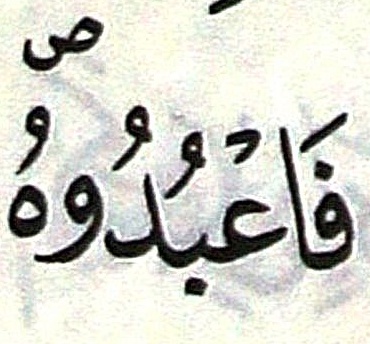 فَاعْبُدُوهُ ۖ ص